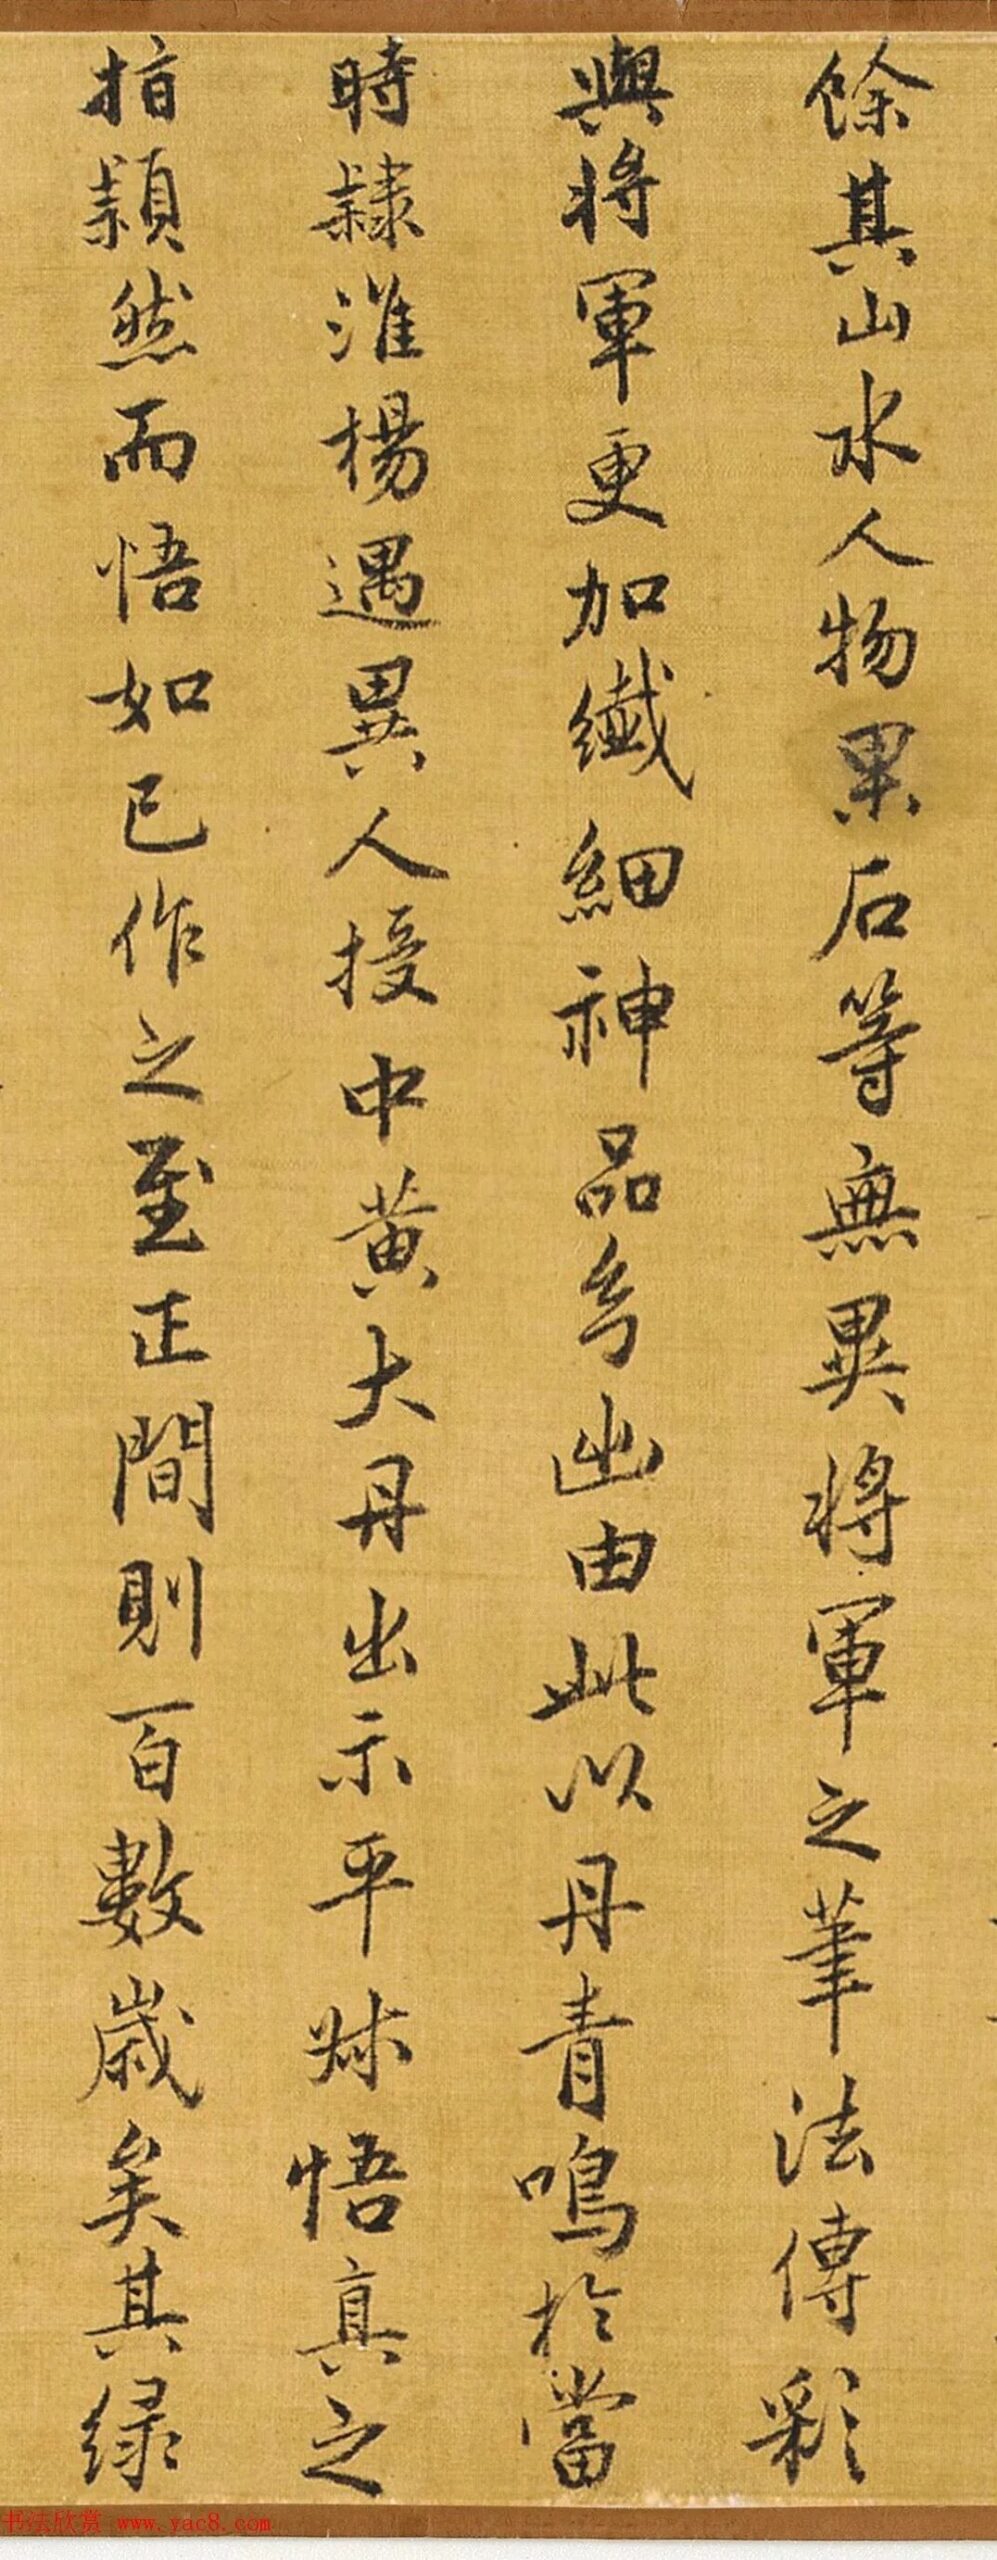 餘其山水人物果石等無異將軍之筆法傳彩
與將軍更加纖細神品幻出由此以丹青鳴於當
時隸淮楊遇異人授中黃大丹出示平叔悟真之
指頴然而悟如己作之至正間則百數歲矣其绿
书法欣赏 www.yac8.com